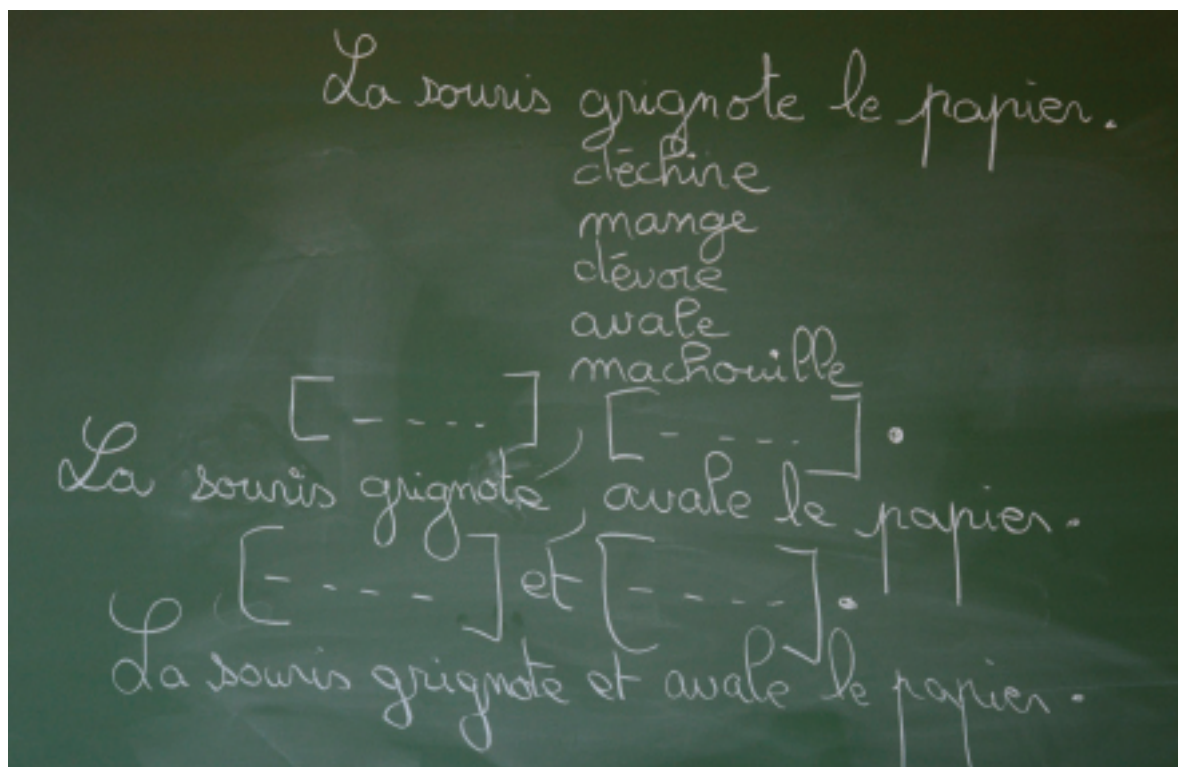 La souris grignote le papier.
déchire
mange
dévore
avale
machouille
[_ _ _ _ _] , [_ _ _ _ _].
La souris grignote, avale le papier.
[_ _ _ _] et [_ _ _ _ _].
La souris grignote et avale le papier.